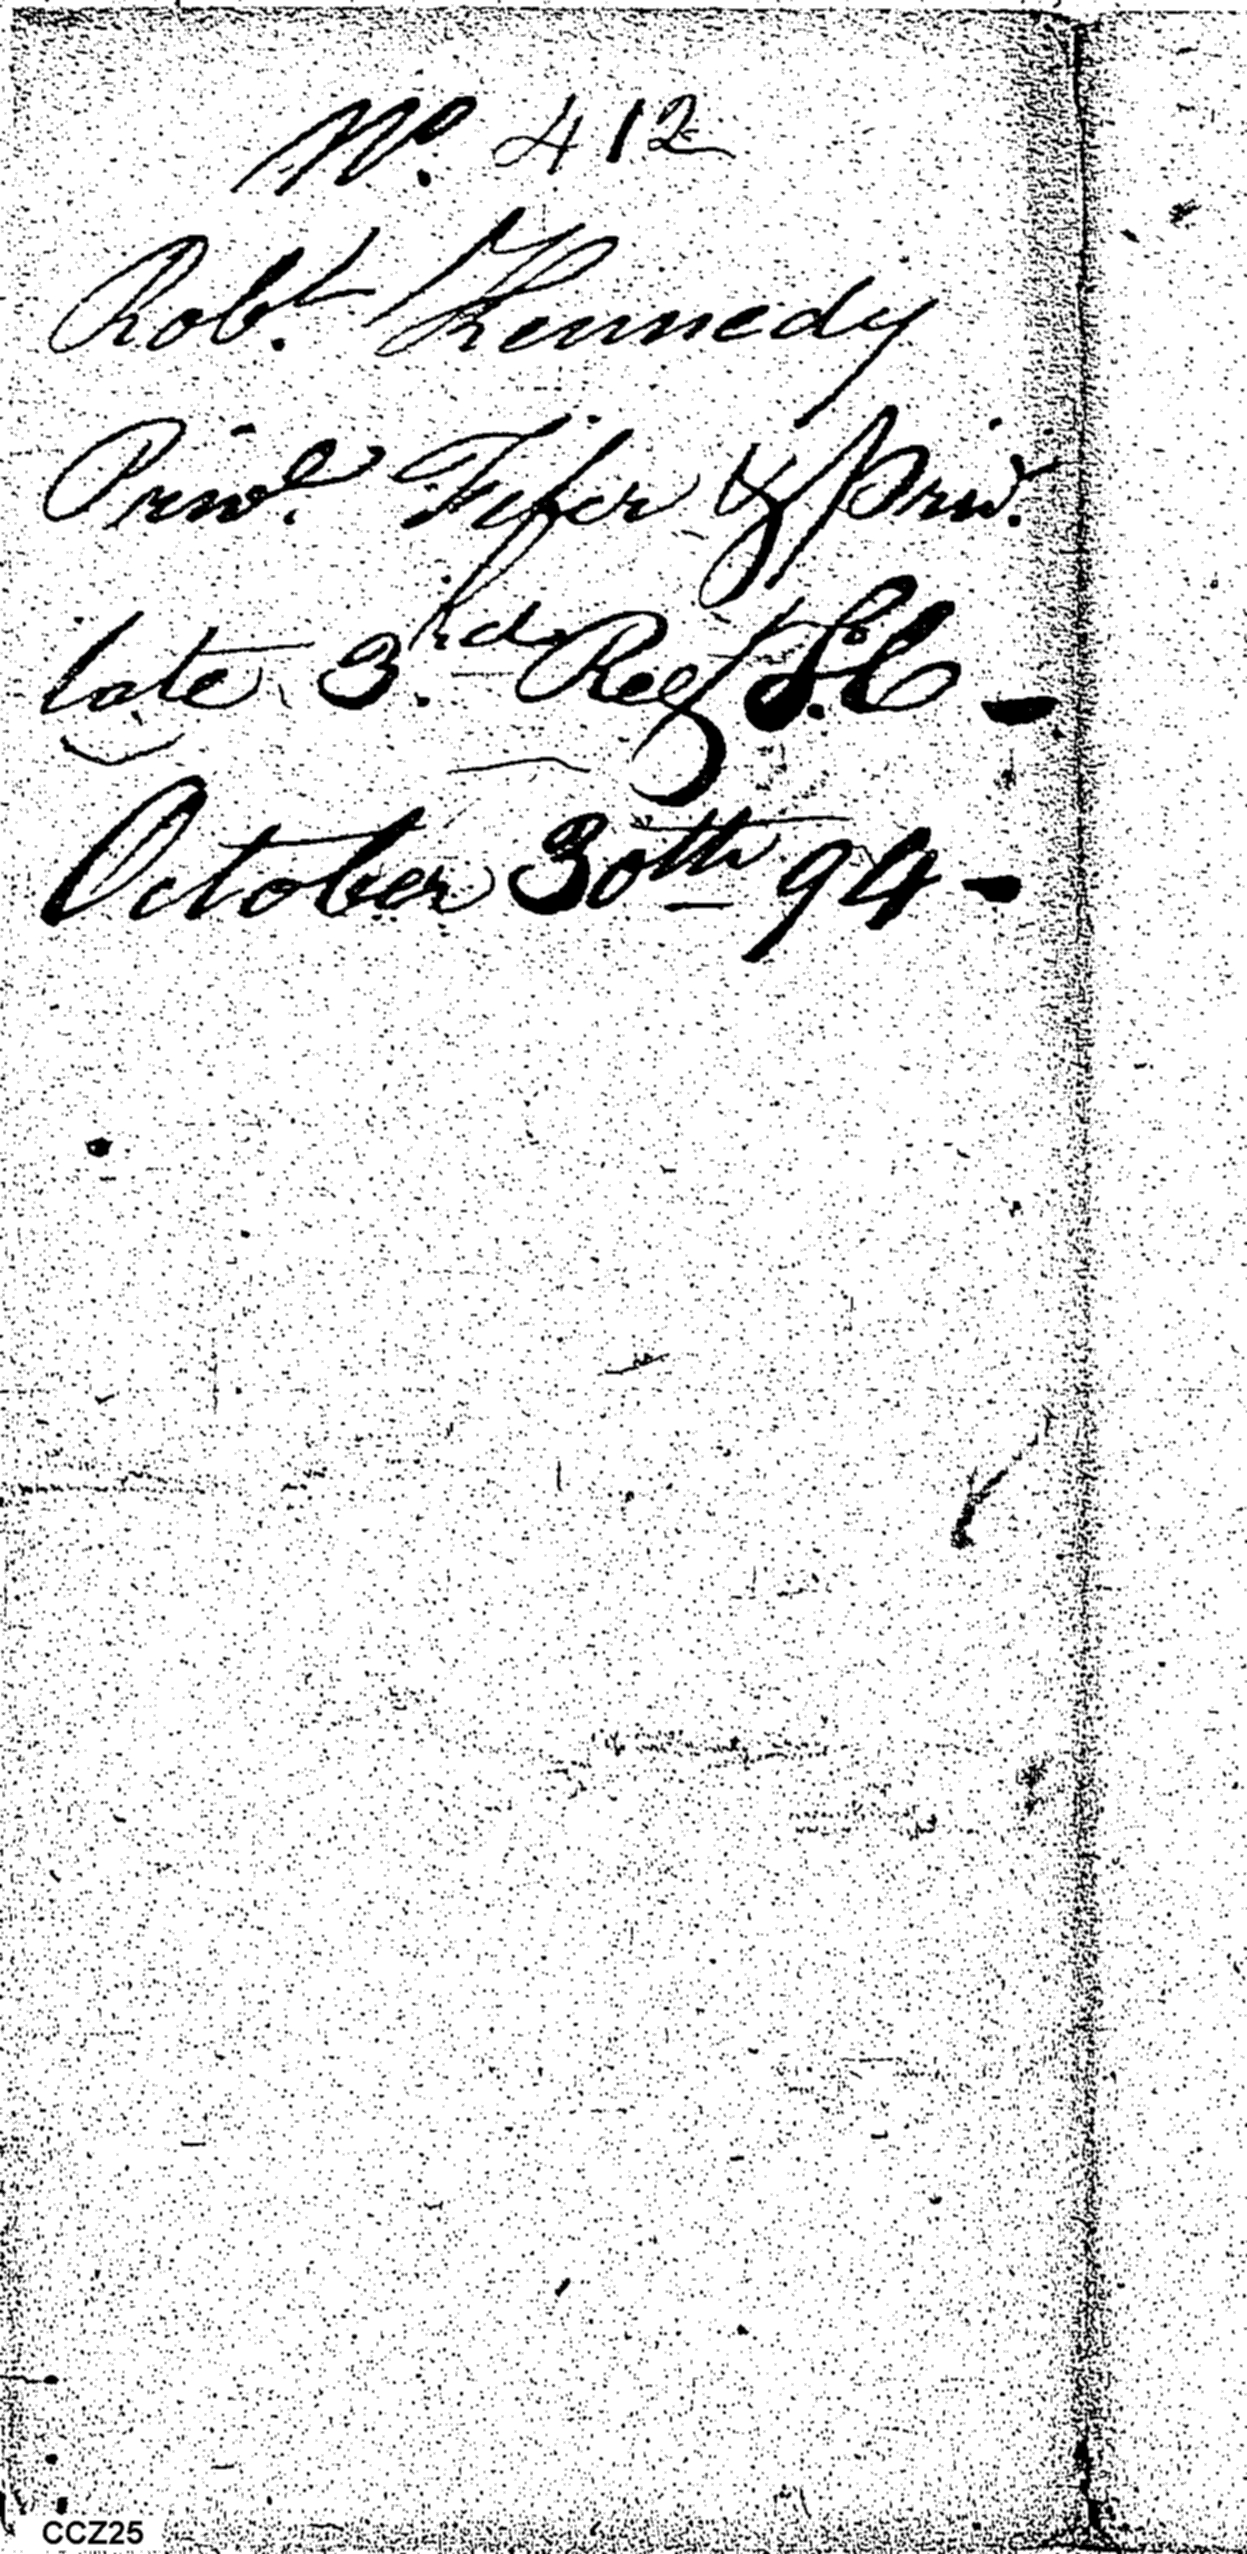 No. 412
Robt. Kennedy
Prinl. Fifer & Priv.
late 3.rd Regt S.C -
October 30th 94 -
CCZ25